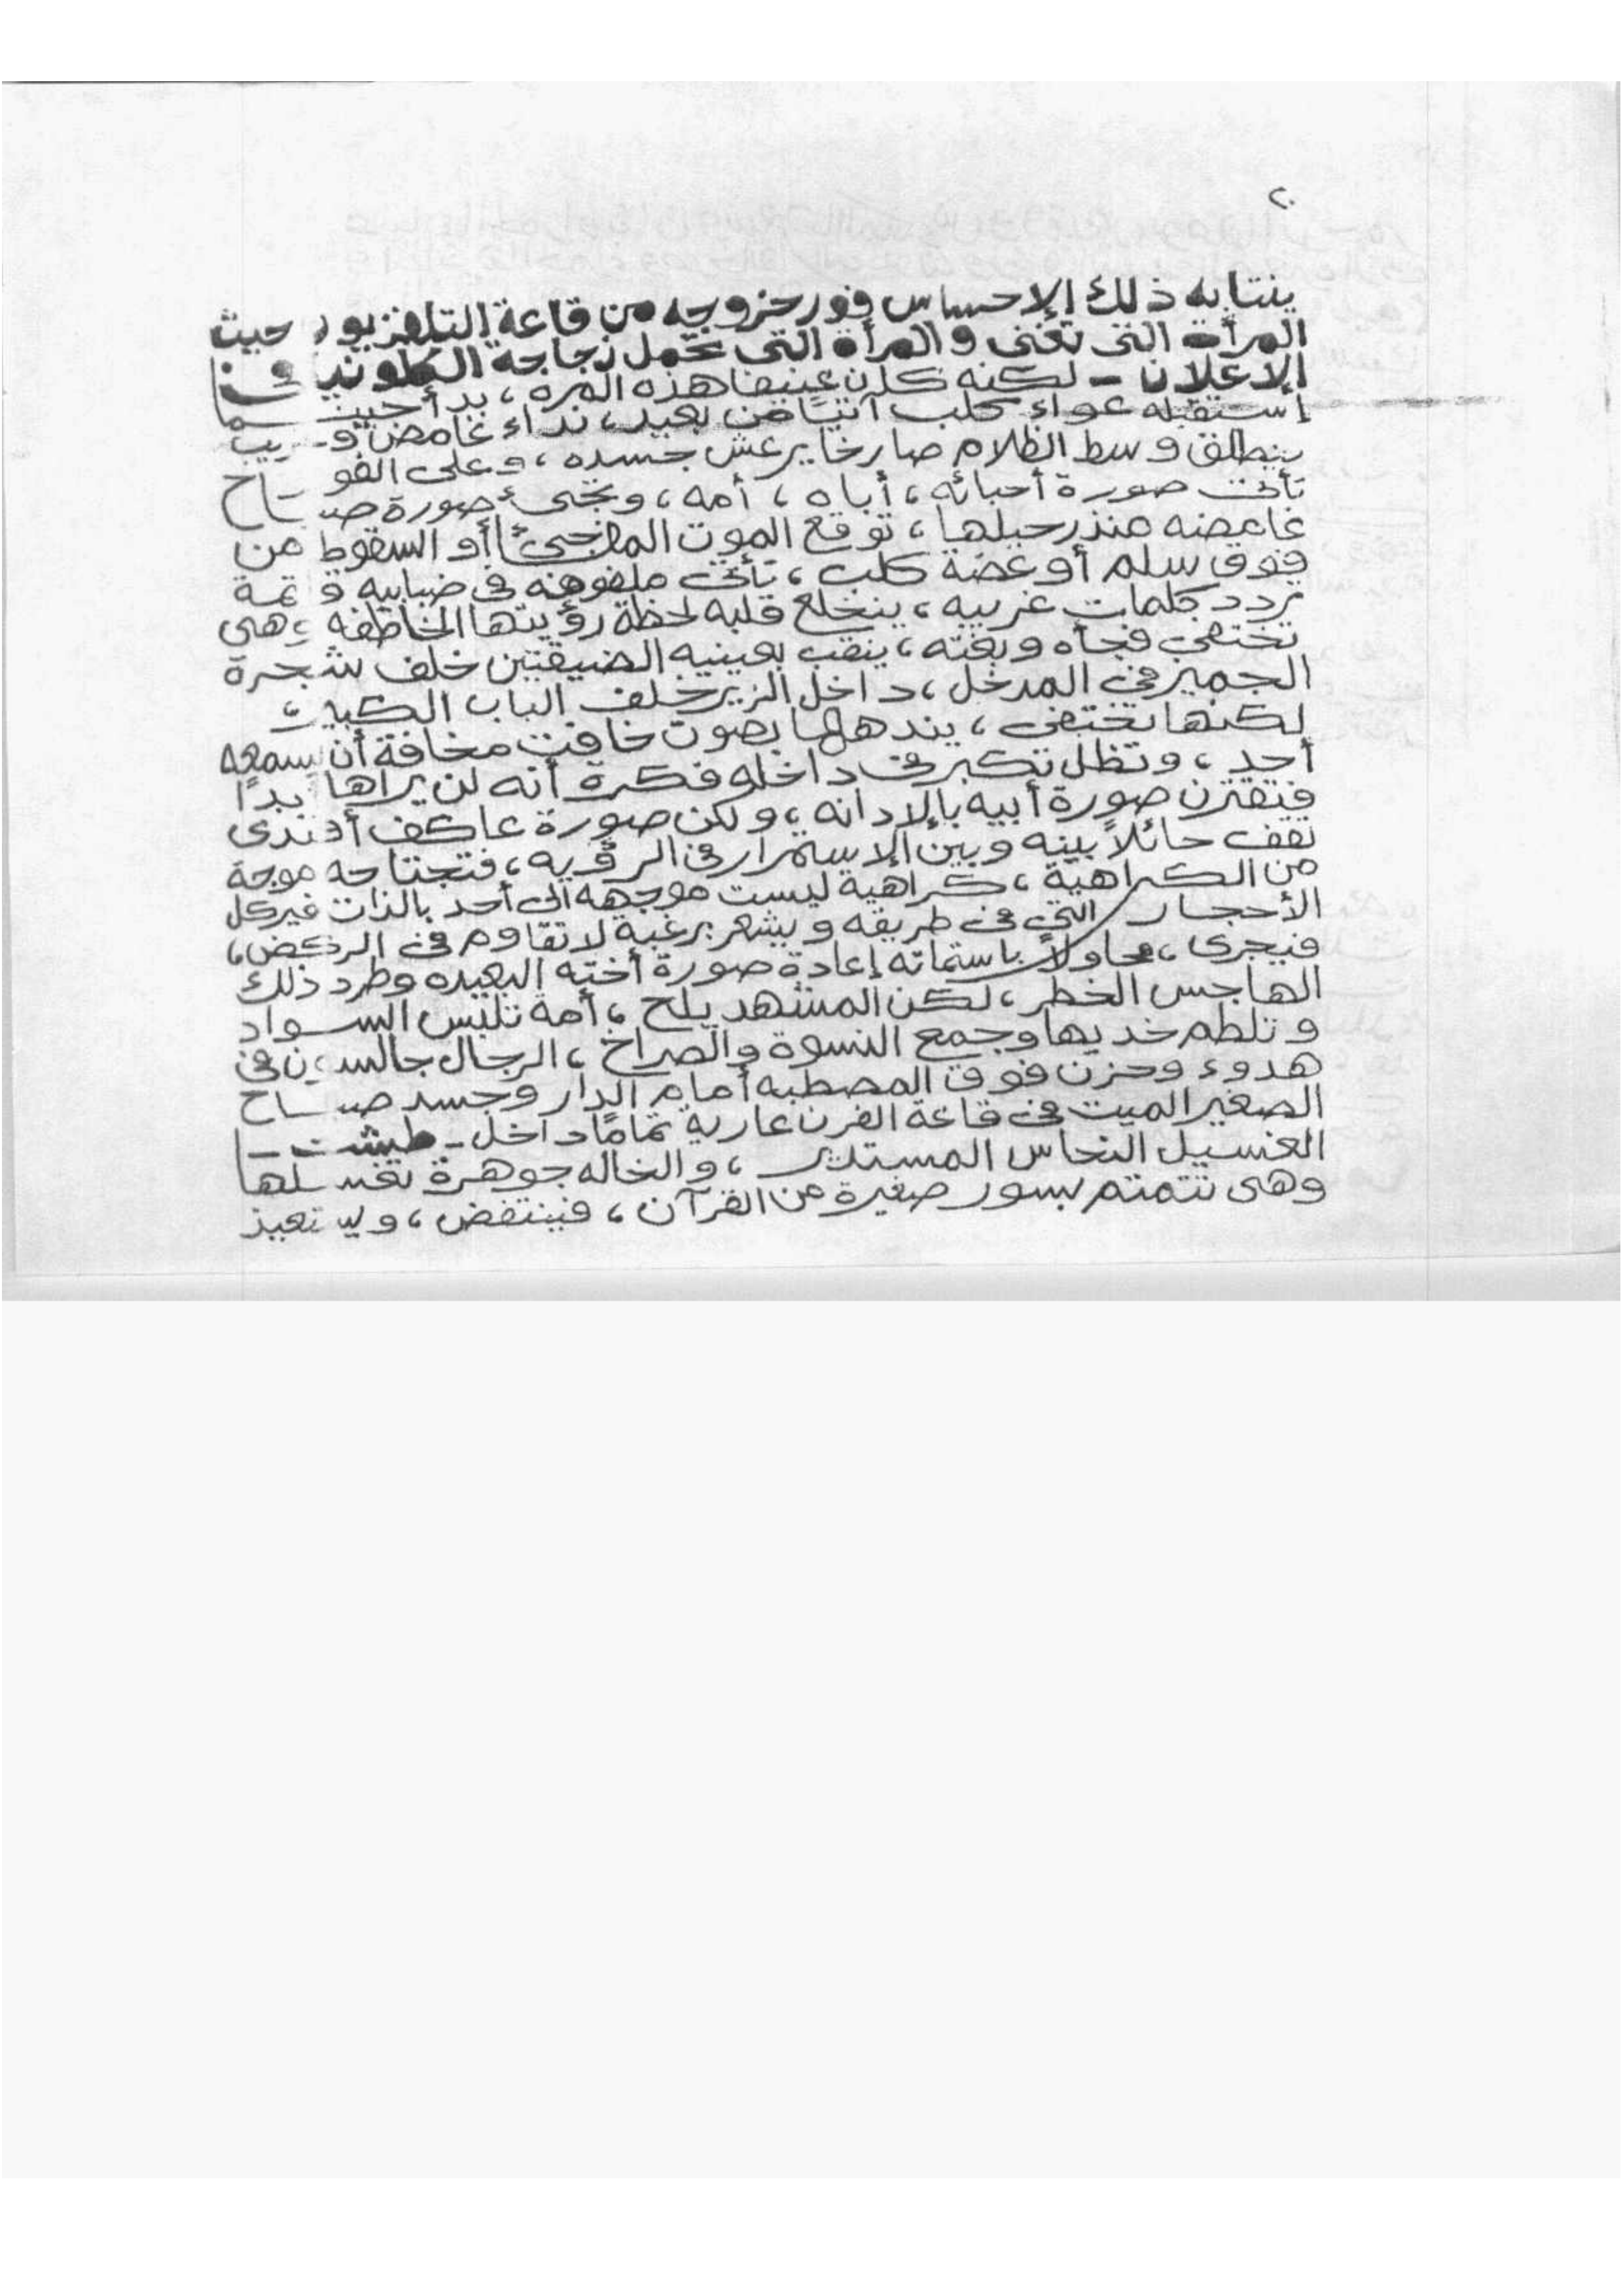 ٢٠
ينتابه ذلك الإحساس فور خروجه من قاعة التلفزيون حيث
المرأة التى تغنى والمرأة التى تحمل زجاجة الكلونيا فى
الإعلان - لكنه كان عنيفا هذه المره ، بدأ حينما
إستقبله عواء كلب آتيًا من بعيد ، نداء غامض وغريب
ينطلق وسط الظلام صارخا يرعش جسده ، وعلى الفور
تأتى صورة أحبائه ، أباه ، أمه ، وتجىء صورة صباح
غامضه منذ رحيلها ، توقع الموت المفاجىء أو السقوط من
فوق سلم أو عضة كلب ، تأتى ملفوفه فى ضبابيه قاتمة
تردد كلمات غريبه ، ينخلع قلبه لحظة رؤيتها الخاطفه وهى
تختفى فجأه وبغته ، ينقب بعينيه الضيقتين خلف شجرة
الجميز فى المدخل ، داخل الزير خلف الباب الكبير ،
لكنها تختفى ، يندهها بصوت خافت مخافة أن يسمعه
أحد ، وتظل تكبر فى داخله فكرة أنه لن يراها أبدًا
فتقترن صورة أبيه بالإدانه ، ولكن صورة عاكف أفندى
تقف حائلاً بينه وبين الإستمرار فى الرؤيه ، فتجتاحه موجة
من الكراهية ، كراهية ليست موجهه الى أحد بالذات فيركل
الأحجار التى فى طريقه ويشعر برغبة لا تقاوم فى الركض ،
فيجرى ، محاولاً باستماته إعادة صورة أخته البعيده وطرد ذلك
الهاجس الخطر ، لكن المشهد يلح ، أمه تلبس السواد
وتلطم خديها وجمع النسوة والصراخ ، الرجال جالسين فى
هدوء وحزن فوق المصطبه أمام الدار وجسد صباح
الصغير الميت فى قاعة الفرن عارية تمامًا داخل - طشت -
الغسيل النحاس المستدير ، والخاله جوهرة تغسلها
وهى تتمتم بسور صغيرة من القرآن ، فينتفض ، ويستعيذ